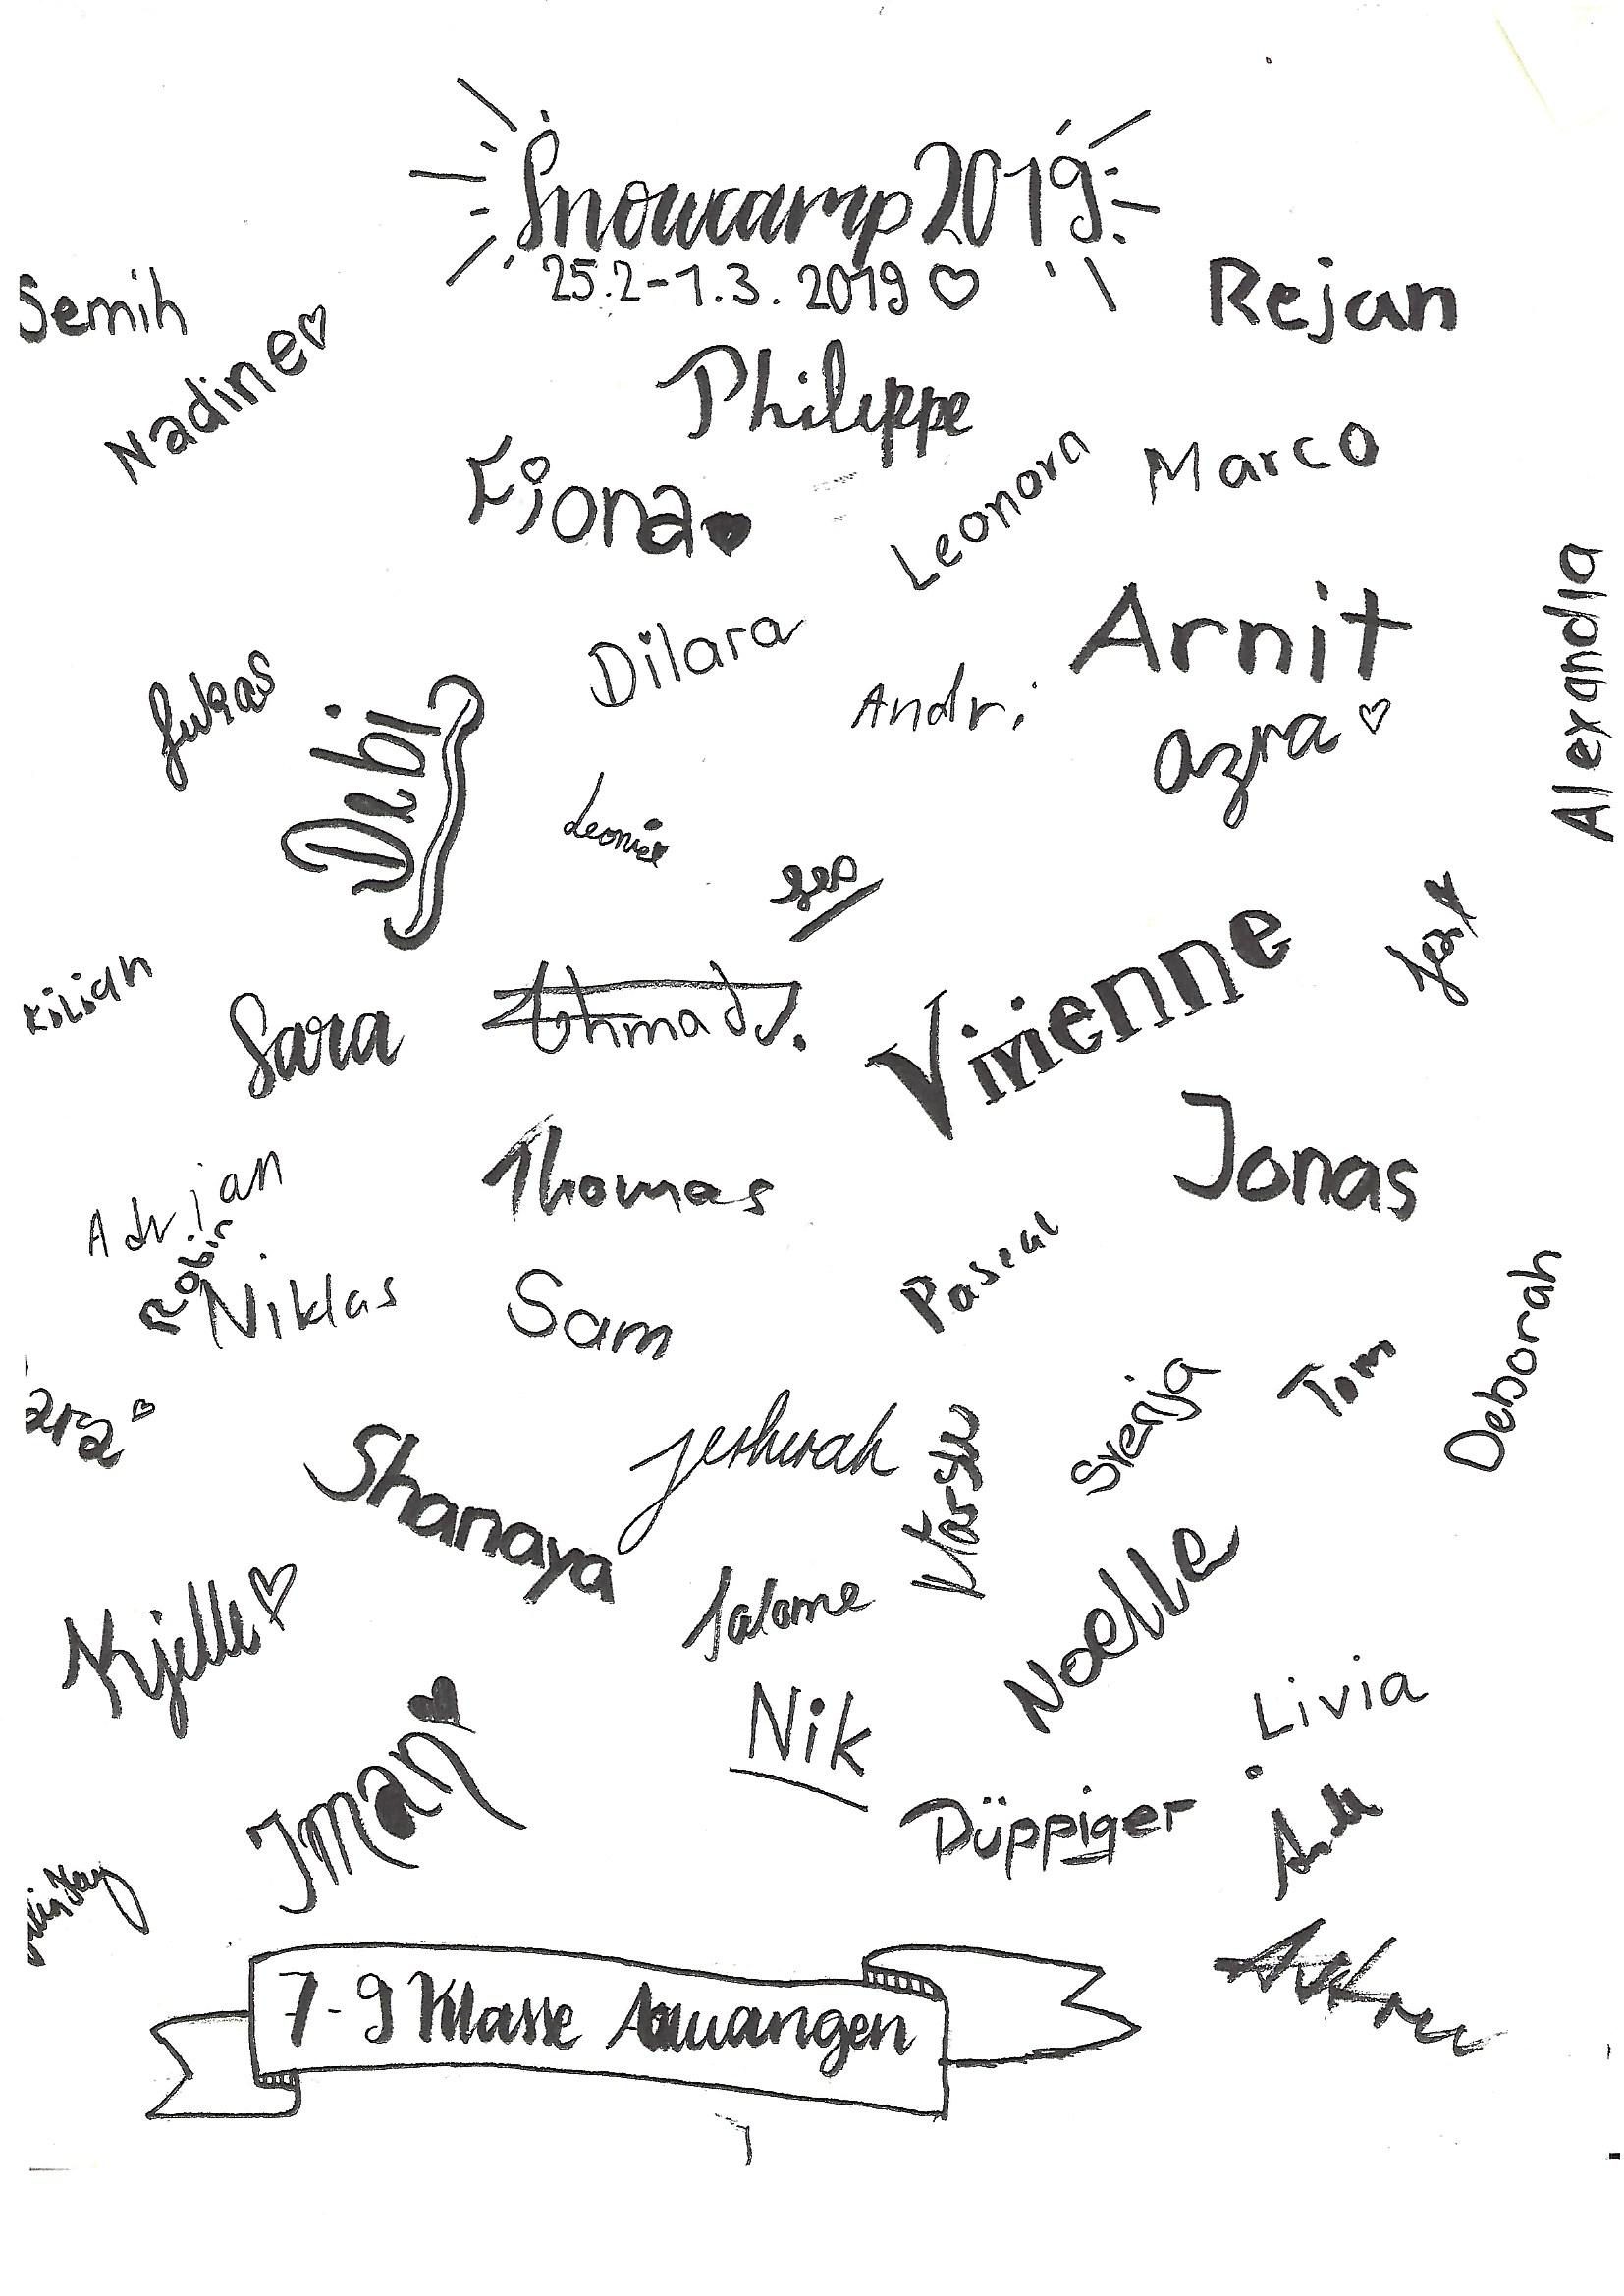 Snowcamp 2019
25.2-1.3. 2019
Semih
Rejan
Nadine
Philippe
Fiona
Leonora
Marco
Alexandra
Dilara
Arnit
Lukas
Debi
Andri
Azra
Leonie
Vivienne
Kilian
Sara
Ahmad J.
Thomas
Jonas
Adrian
Robin
Niklas
Sam
Pascal
Deborah
Tom
Svenja
Shanaya
Jeshurah
Kjelle
Salome
Noelle
Iman
Nik
Livia
Düppiger
7-9 Klasse Aauwangen